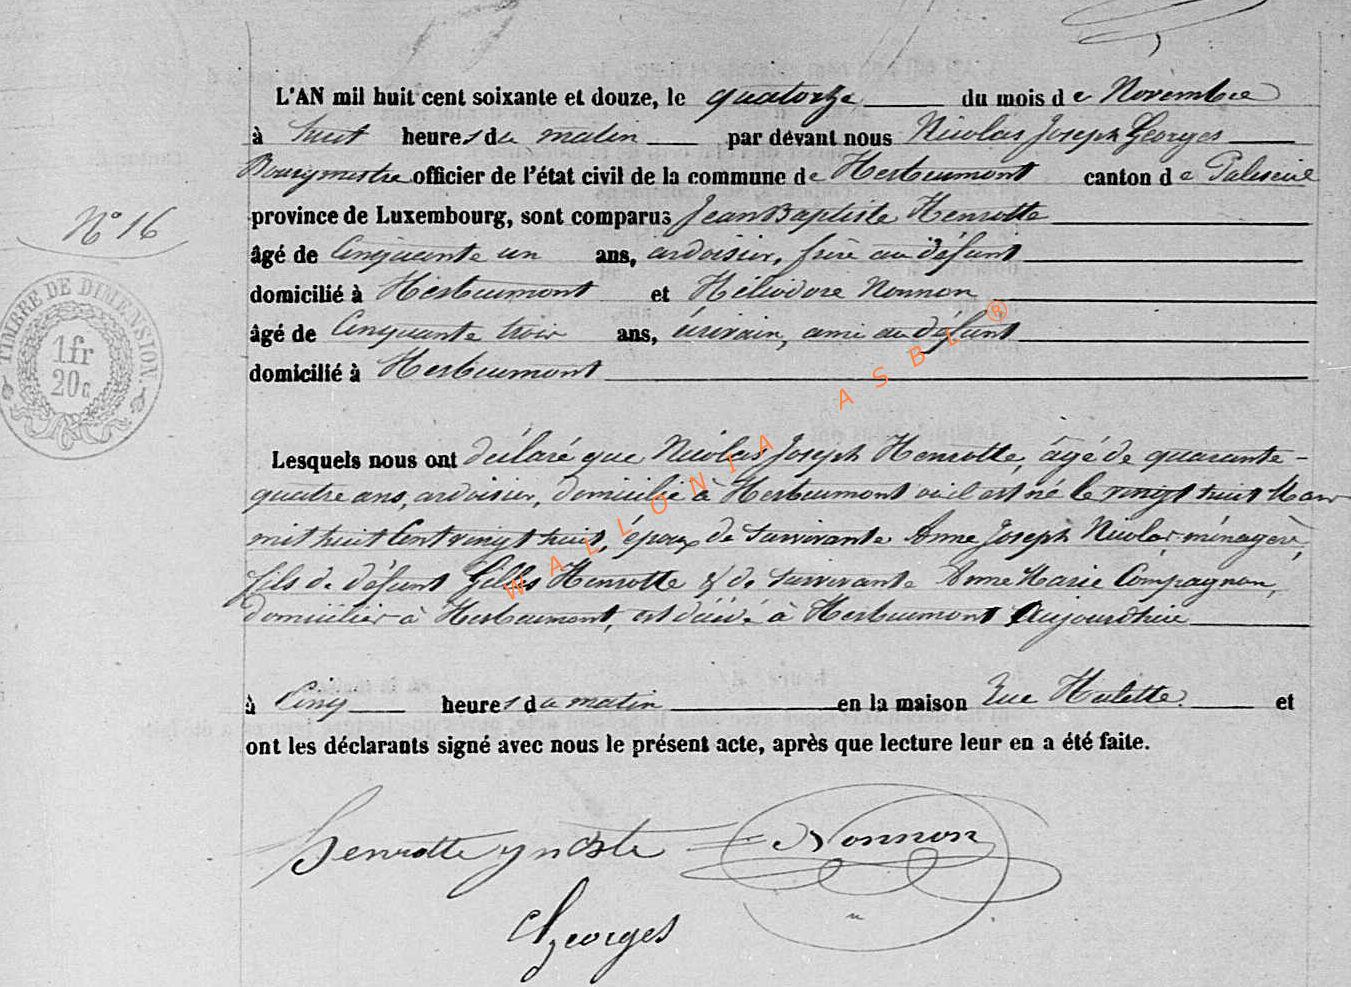 L'AN mil huit cent soixante et douze, le quatorze du mois de Novembre
à huit heures du matin par devant nous Nicolas Joseph Georges
Bourgmestre officier de l'état civil de la commune de Herbeumont canton de Paliseul
province de Luxembourg, sont comparus Jean Baptiste Henrotte
N° 16
âgé de Cinquante un ans, ardoisier, frère au défunt
domicilié à Herbeumont et Héliodore Nonnon
âgé de Cinquante trois ans, écrivain, ami au défunt
domicilié à Herbeumont
TIMBRE DE DIMENSION
1 fr
20 c
WALLONIA ASBL ®
Lesquels nous ont déclaré que Nicolas Joseph Henrotte, âgé de quarante-
quatre ans, ardoisier, domicilié à Herbeumont où il est né le vingt huit Mars
mil huit Cent vingt huit, époux de survivante Anne Joseph Nicolas ménagère,
fils de défunt Gilles Henrotte & de survivante Anne Marie Compagnon,
domicilier à Herbeumont, est décédé à Herbeumont Aujourdhui
à Cinq heures du matin en la maison Rue Hulette et
ont les déclarants signé avec nous le présent acte, après que lecture leur en a été faite.
henrotte Nonnon
Georges